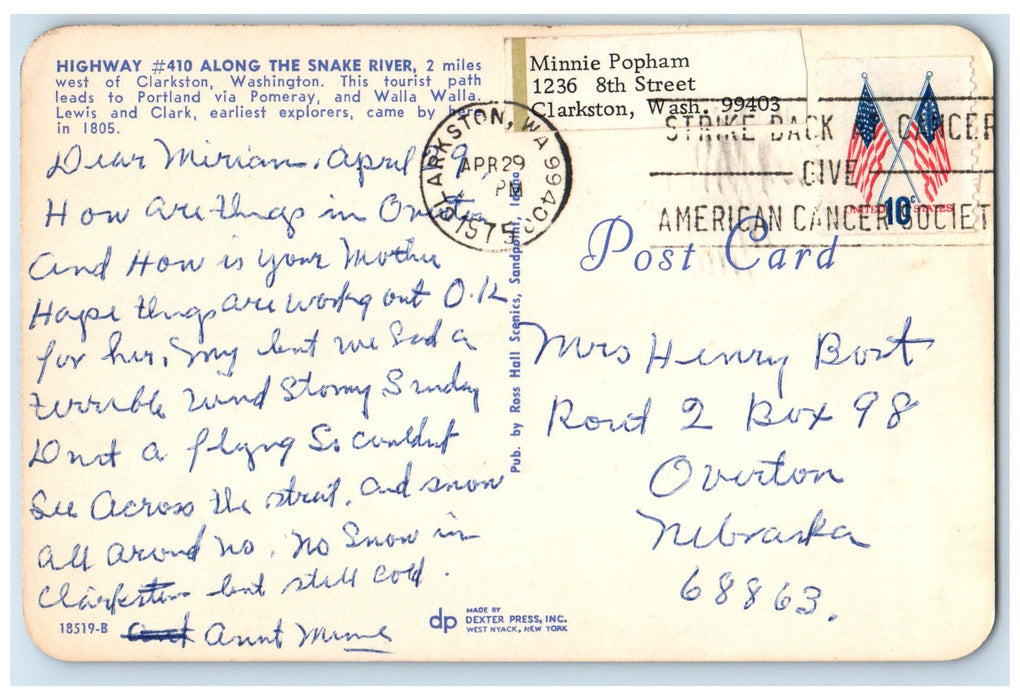 HIGHWAY #410 ALONG THE SNAKE RIVER, 2 miles
west of Clarkston, Washington. This tourist path
leads to Portland via Pomeray, and Walla Walla.
Lewis and Clark, earliest explorers, came by here
in 1805.
Dear Miriam, April 9,
How are things in Overton
and How is your Mother
Hope things are workng out O.K
for her, my but we Had a
terrible wind Stormy Sunday
Dust a flying So couldnt
See Across the street, and snow
all around us. No Snow in
Clarkston but still cold.
Aunt Minnie
18519-B
Minnie Popham
1236 8th Street
Clarkston, Wash. 99403
CLARKSTON, WA 99403
APR 29
PM
1975
STRIKE BACK AT CANCER
GIVE
AMERICAN CANCER SOCIETY
UNITED 10c STATES
Post Card
Pub. by Ross Hall Scenics, Sandpoint, Idaho
Mrs Henry
Rout 2 Box 98
Overton
Nebraska
68863.
dp
MADE BY
DEXTER PRESS, INC.
WEST NYACK, NEW YORK